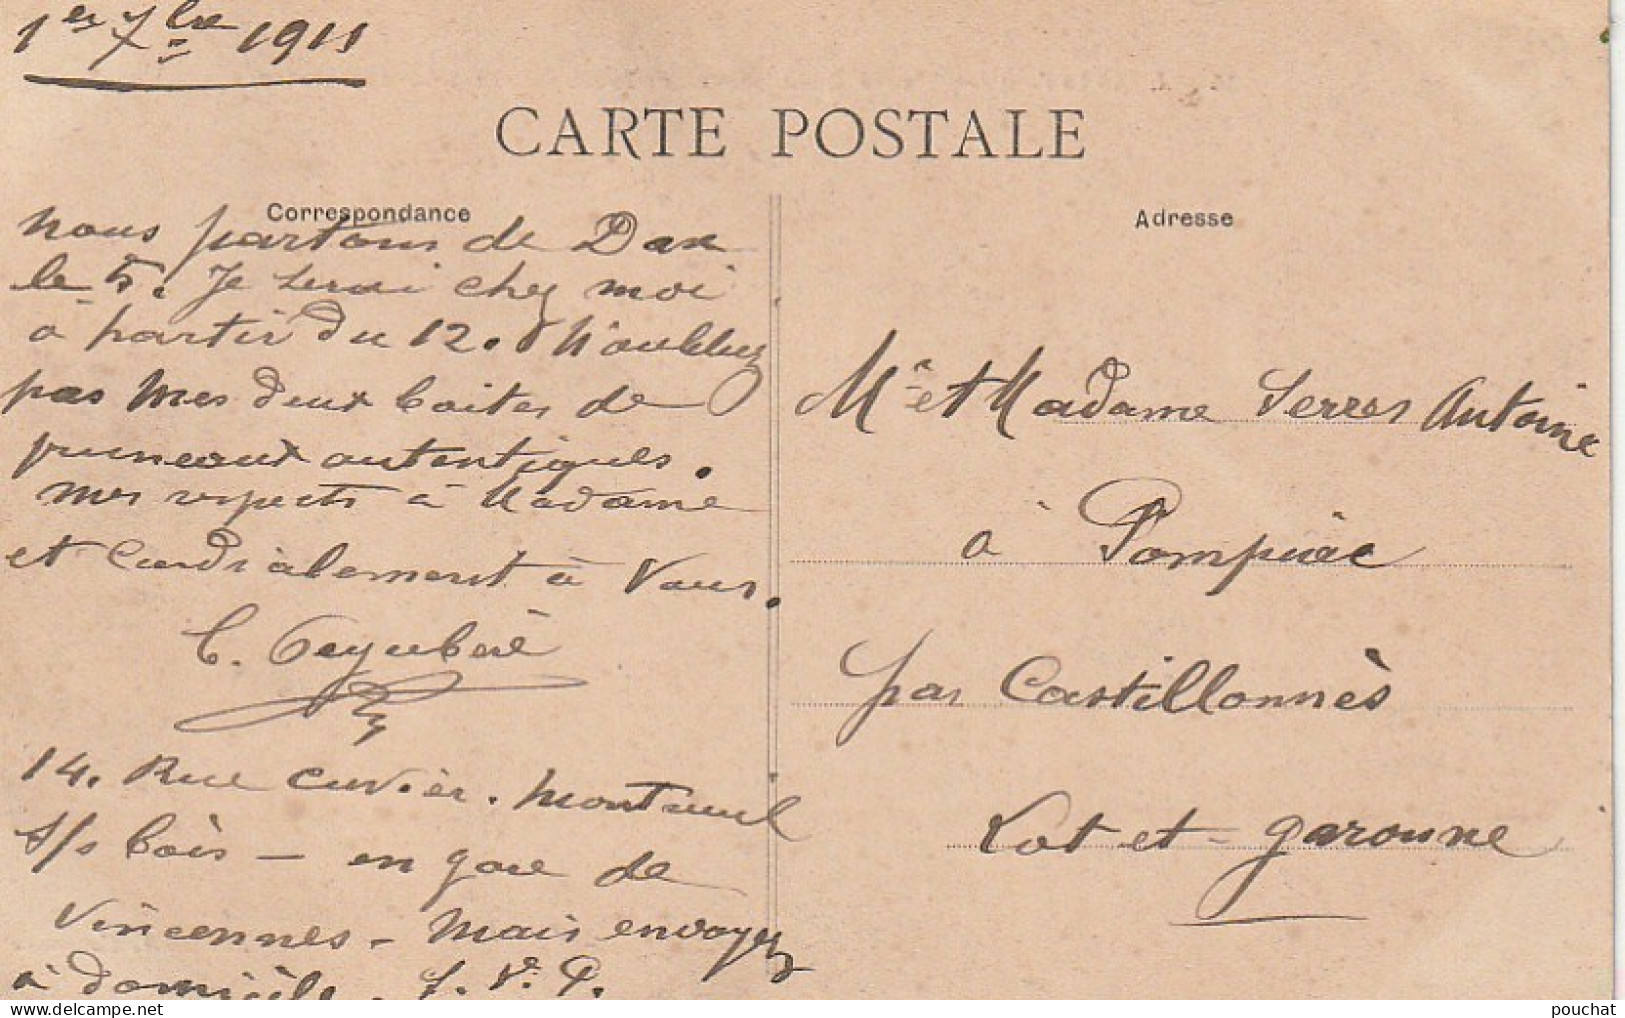 1er 7bre 1911
CARTE POSTALE
Correspondance
Adresse
nous partons de Dax
le 5. Je serai chez moi
a partir du 12. N'oubliez
pas mes deux boites de
pruneaux autentiques.
mes respects à Madame
et cordialement à Vous.
14. Rue Cuvier. Montreuil
s/s bois - en gare de
Vincennes - Mais envoyez
à domicile. S. V. P.
Mr et Madame Serres Antoine
à Pompiac
par Castillonnès
Lot-et-garonne
pouchat